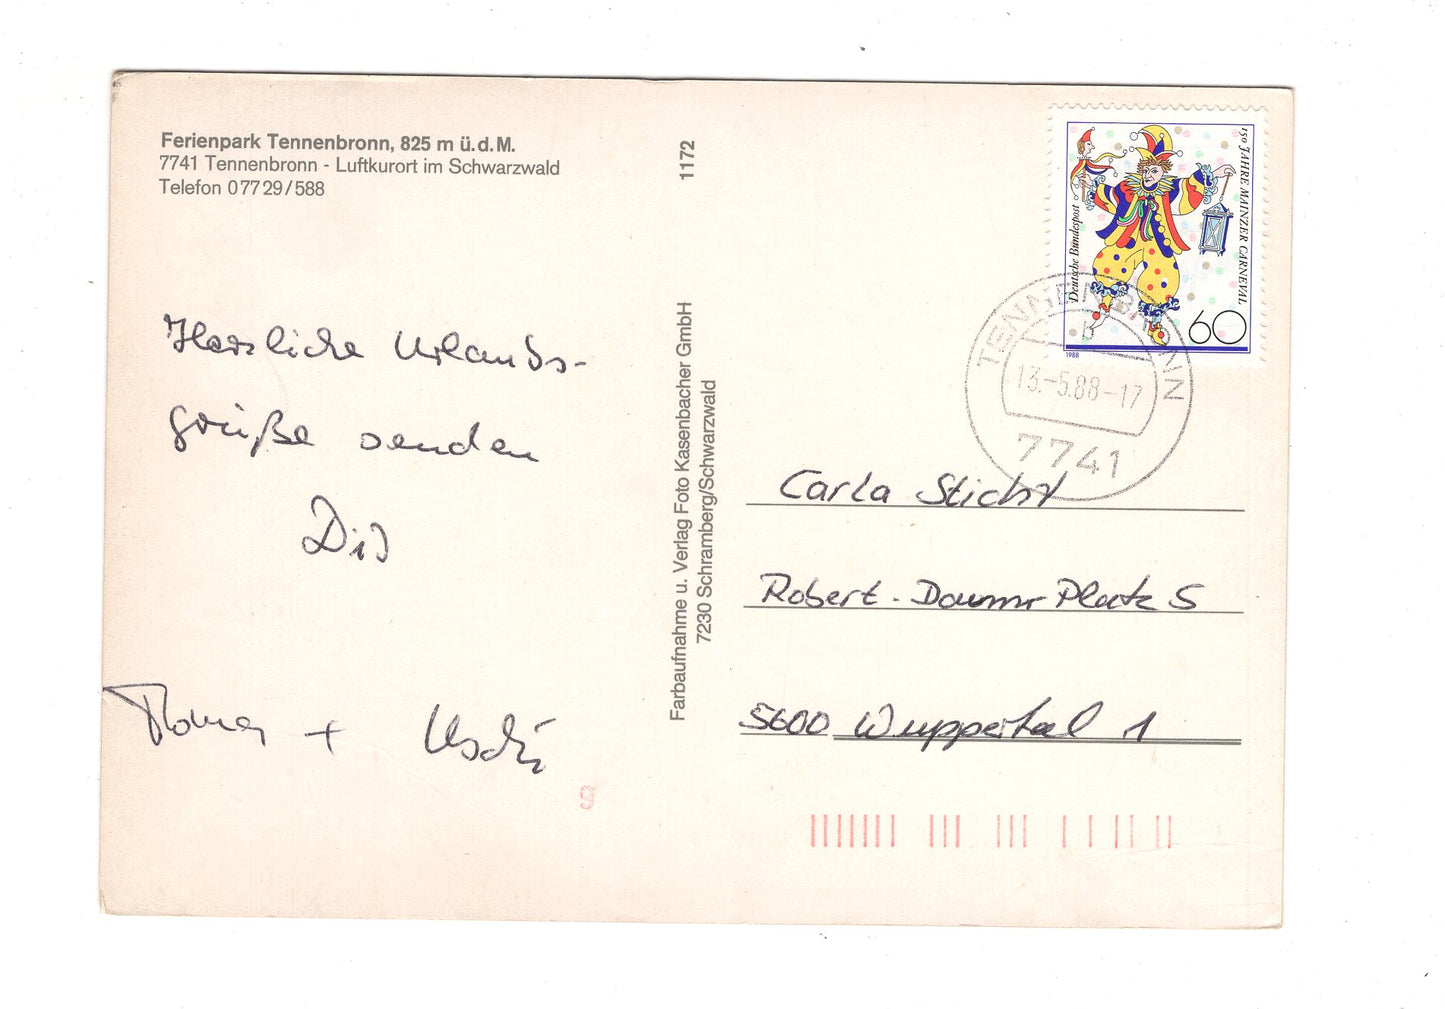 Ferienpark Tennenbronn, 825 m ü.d.M.
7741 Tennenbronn - Luftkurort im Schwarzwald
Telefon 07729/588
Herzliche Urlaubs-
grüße senden
Dir
+ Uschi
1172
Farbaufnahme u. Verlag Foto Kasenbacher GmbH
7230 Schramberg/Schwarzwald
150 JAHRE MAINZER CARNEVAL
Deutsche Bundespost
60
1988
TENNENBRONN
b
13.-5.88-17
7741
Carla Sticht
Robert-Daum Platz 5
5600 Wuppertal 1
g